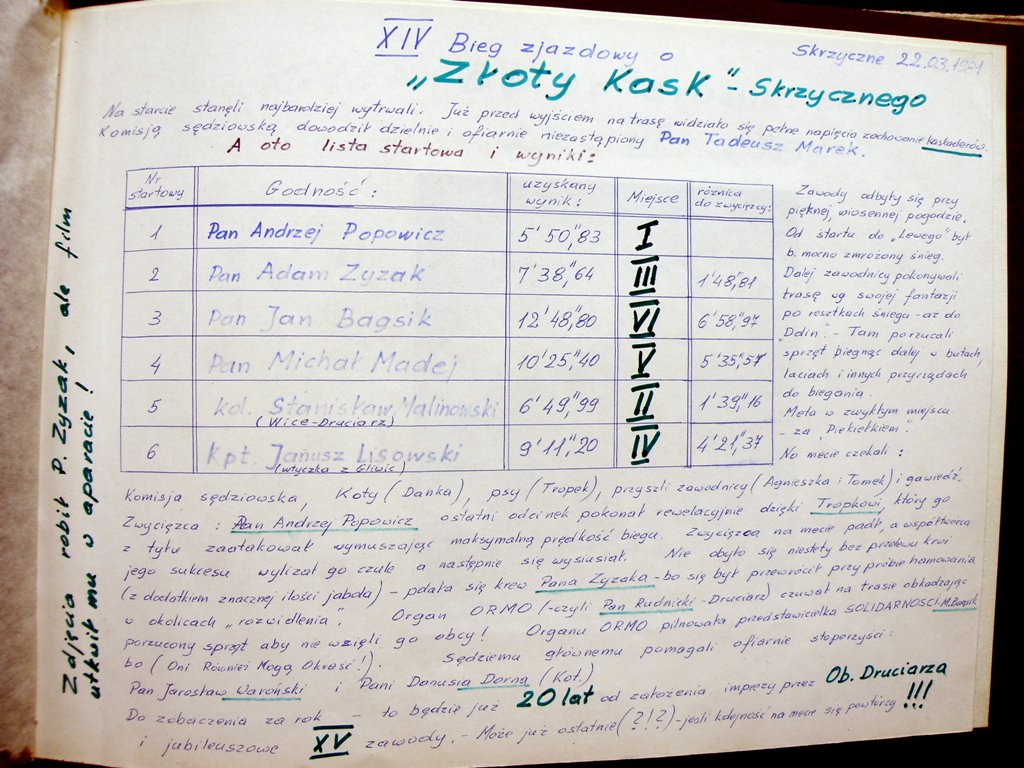 XIV Bieg zjazdowy o
Skrzyczne 22.03.1981
„Złoty Kask" - Skrzycznego
Na starcie stanęli najbardziej wytrwali. Już przed wyjściem na trasę widziało się pełne napięcia zachowanie kaskaderów.
Komisją sędziowską dowodził dzielnie i ofiarnie niezastąpiony Pan Tadeusz Marek.
A oto lista startowa i wyniki:
Nr startowy Godność: uzyskany wynik: Miejsce różnica do zwycięzcy:
1 Pan Andrzej Popowicz 5'50,"83 I
2 Pan Adam Zyzak 7'38,"64 III 1'48,"81
3 Pan Jan Bagsik 12'48,"80 VI 6'58,"97
4 Pan Michał Madej 10'25,"40 V 5'35,"57
5 kol. Stanisław Malinowski 6'49,"99 II 1'39,"16
(Wice-Druciarz)
6 Kpt. Janusz Lisowski 9'11,"20 IV 4'21,"37
(wtyczka z Gliwic)
Zawody odbyły się przy
pięknej, wiosennej pogodzie.
Od startu do „Lewego" był
b. mocno zmrożony śnieg.
Dalej zawodnicy pokonywali
trasę wg swojej fantazji
po resztkach śniegu - aż do
- Tam porzucali
sprzęt biegnąc dalej w butach,
laciach i innych przyrządach
do biegania.
Meta w zwykłym miejscu
- za „Piekiełkiem".
Na mecie czekali:
Komisja sędziowska, Koty (Danka), psy (Tropek), przyszli zawodnicy (Agnieszka i Tomek) i gawiedź.
Zwycięzca: Pan Andrzej Popowicz ostatni odcinek pokonał rewelacyjnie dzięki Tropkowi, który go
z tyłu zaatakował wymuszając maksymalną prędkość biegu. Zwycięzca na mecie padł, a współtwórca
jego sukcesu wylizał go czule a następnie się wysiusiał. Nie obyło się niestety bez przelewu krwi
(z dodatkiem znacznej ilości jabola) - polała się krew Pana Zyzaka - bo się był przewrócił przy próbie hamowania
w okolicach „rozwidlenia". Organ ORMO /-czyli Pan Rudnicki - Druciarz) czuwał na trasie obkładając
porzucony sprzęt aby nie wzięli go obcy! Organu ORMO pilnowała przedstawicielka SOLIDARNOŚCI - M. Bagsik
bo (Oni Również Mogą Okraść!). Sędziemu głównemu pomagali ofiarnie stoperzyści:
Pan Jarosław Waroński i Pani Danusia Dorna (Kot.)
Do zobaczenia za rok - to będzie już 20 lat od założenia imprezy przez Ob. Druciarza
i jubileuszowe XV zawody. - Może już ostatnie (?!?) - jeśli kolejność na mecie się powtórzy!!!
Zdjęcia robił P. Zyzak, ale film
utkwił mu w aparacie!